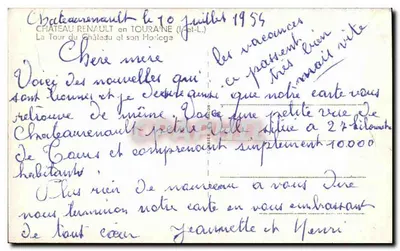 Chateaurenault le 10 juillet 1954
CHATEAU RENAULT en TOURAINE (I.-et-L.)
La Tour du Château et son Horloge
les vacances
ce passent
très bien
mais vite
Chère mère
Voici des nouvelles qui
sont bonnes et je desire ainsi que notre carte vous
retrouve de même. Voici une petite vue de
Chateaurenault petite ville situé a 27 kilometre
de Tours et comprenant simplement 10.000
habitants.
Plus rien de nouveau a vous dire
nous terminon notre carte en vous embrassant
de tout cœur Jeannette et Henri